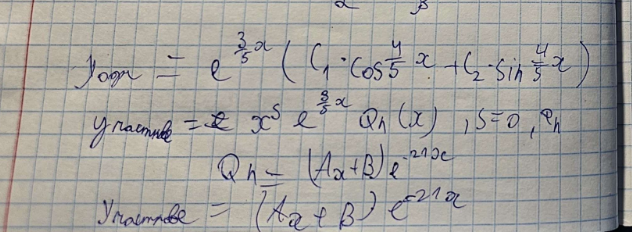 y одн = e^{3/5 x} (C₁·cos 4/5 x + C₂·sin 4/5 x)
y частное = x^s e^{3/5 x} Q_n(x), s=0,
Q_n = (Ax+B) e^{-21x}
y частное = (Ax+B) e^{-21x}